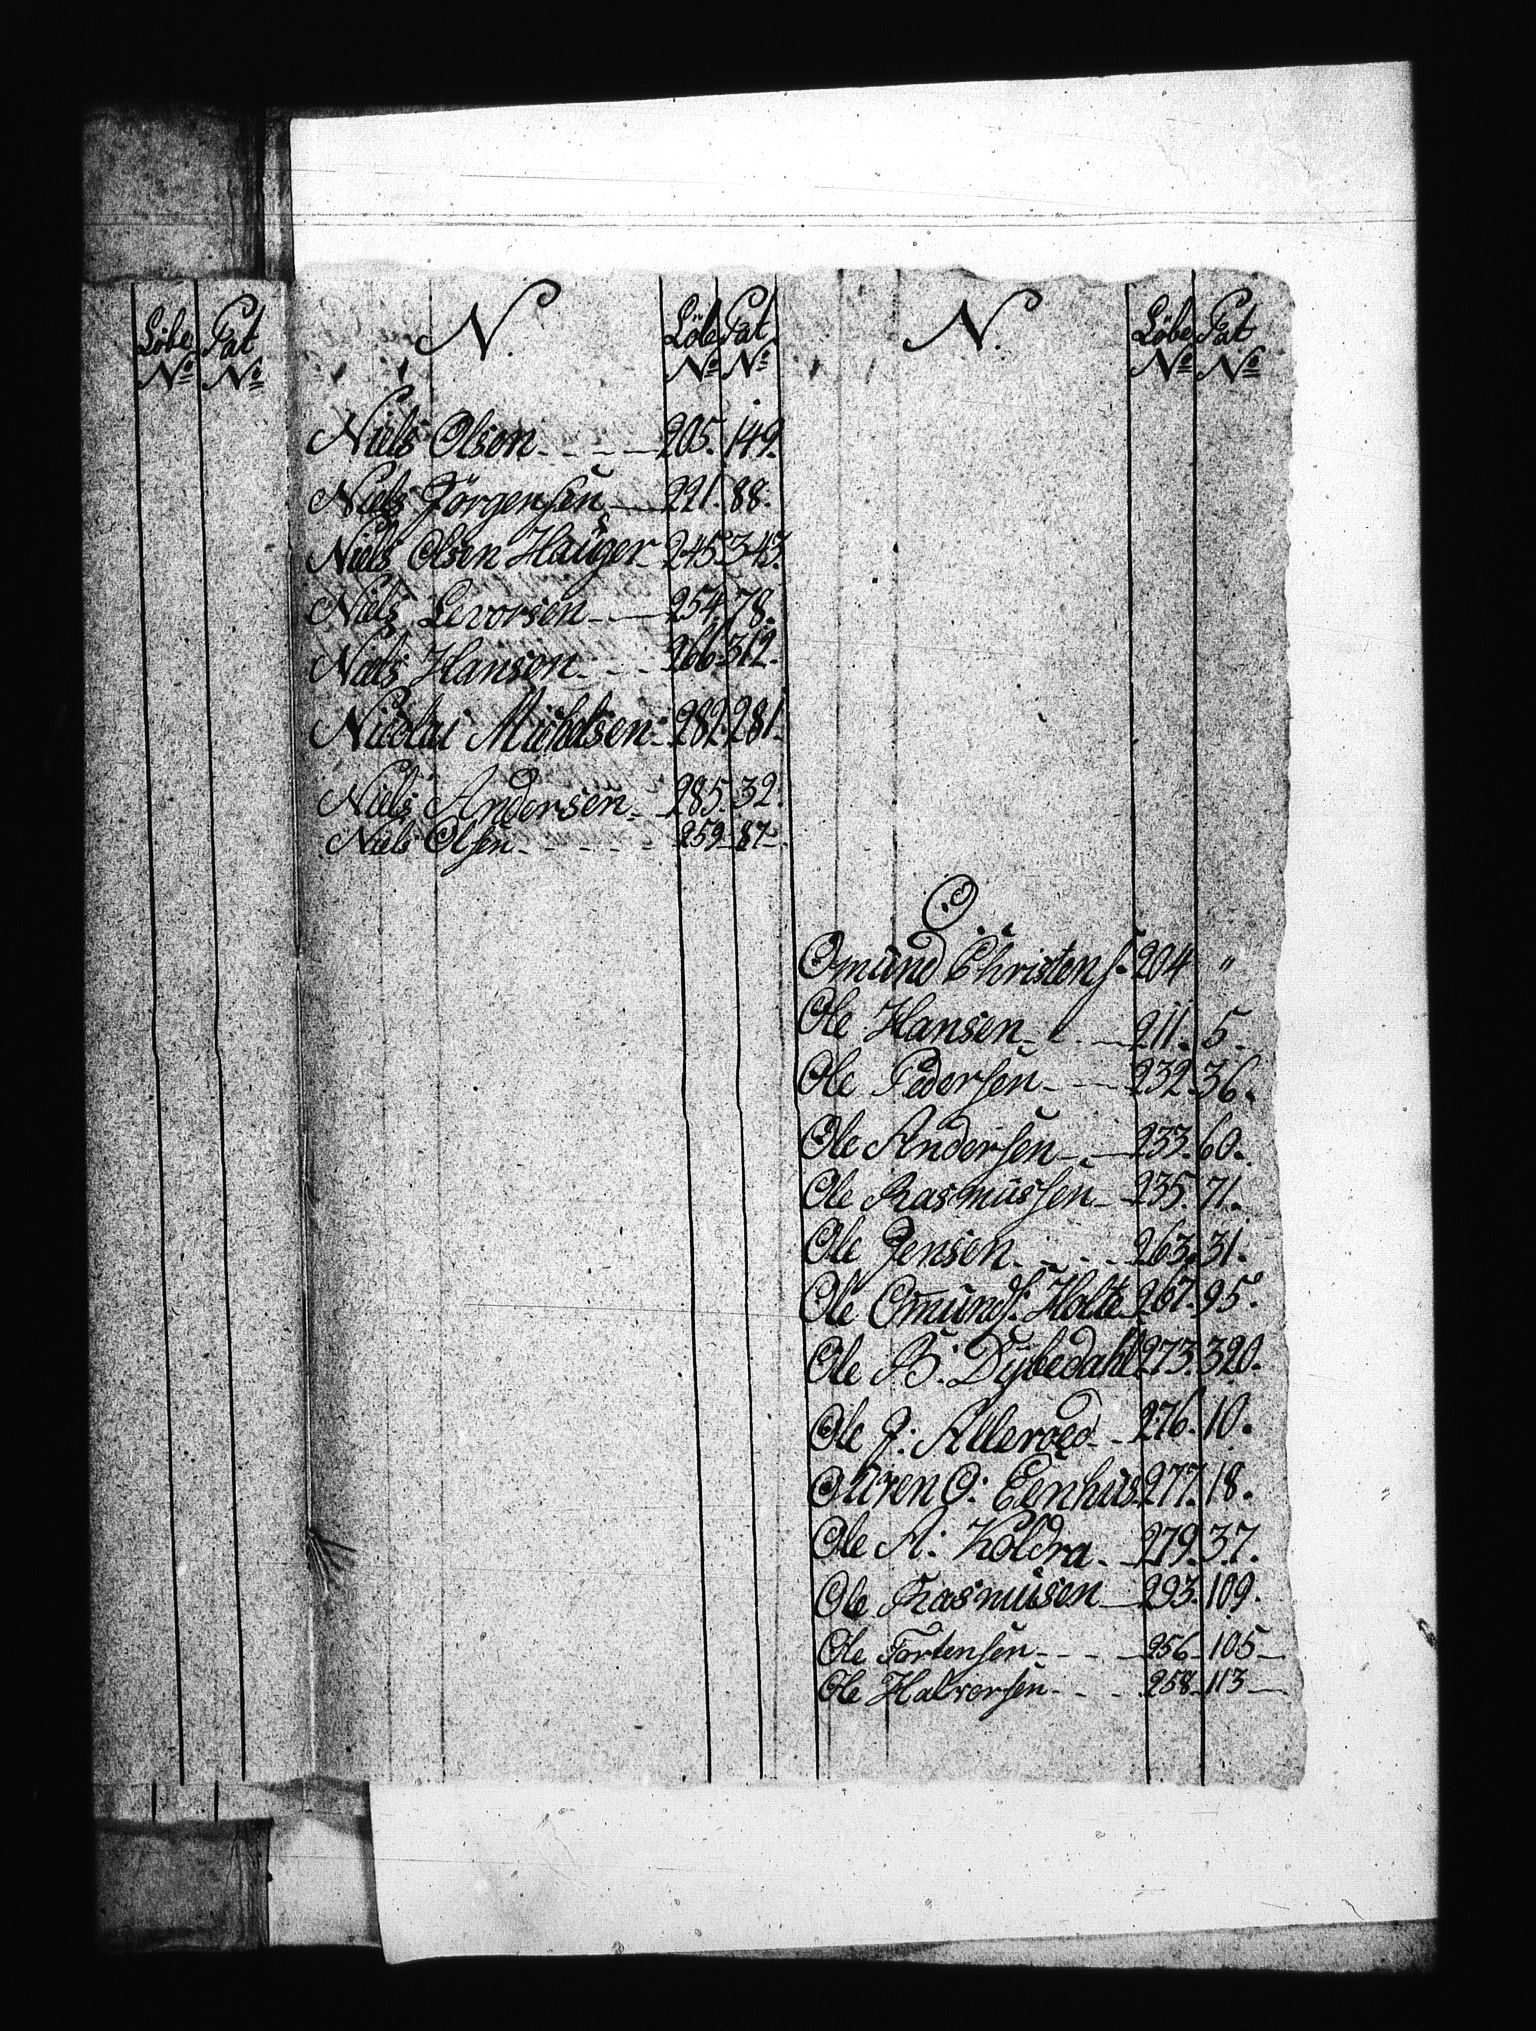 Löbe Pat
No No
N. Löbe Pat
No No
Niels Olsen 205. 149.
Niels Jörgensen 221. 88.
Niels Olsen Hauger 245. 343.
Niels Levorsen 254. 78.
Niels Hansen 266. 312.
Nicolai Michelsen 282. 281.
Niels Andersen 285. 32.
Niels Olsen 259 87
N. Löbe Pat
No No
O.
Omund Christens. 204 "
Ole Hansen 211. 5.
Ole Pedersen 232. 36.
Ole Andersen 233. 60.
Ole Rasmussen 235. 71.
Ole Jensen 263. 31.
Ole Omunds: Holte 267. 95.
Ole B: Dybedahl 273. 320.
Ole J: Alleroed 276. 10.
Ole A: Koldra 279. 37.
O: Eenhus 277. 18.
Ole Rasmusen 293. 109.
Ole Tortensen 256 105
Ole Halvorsen 258 113